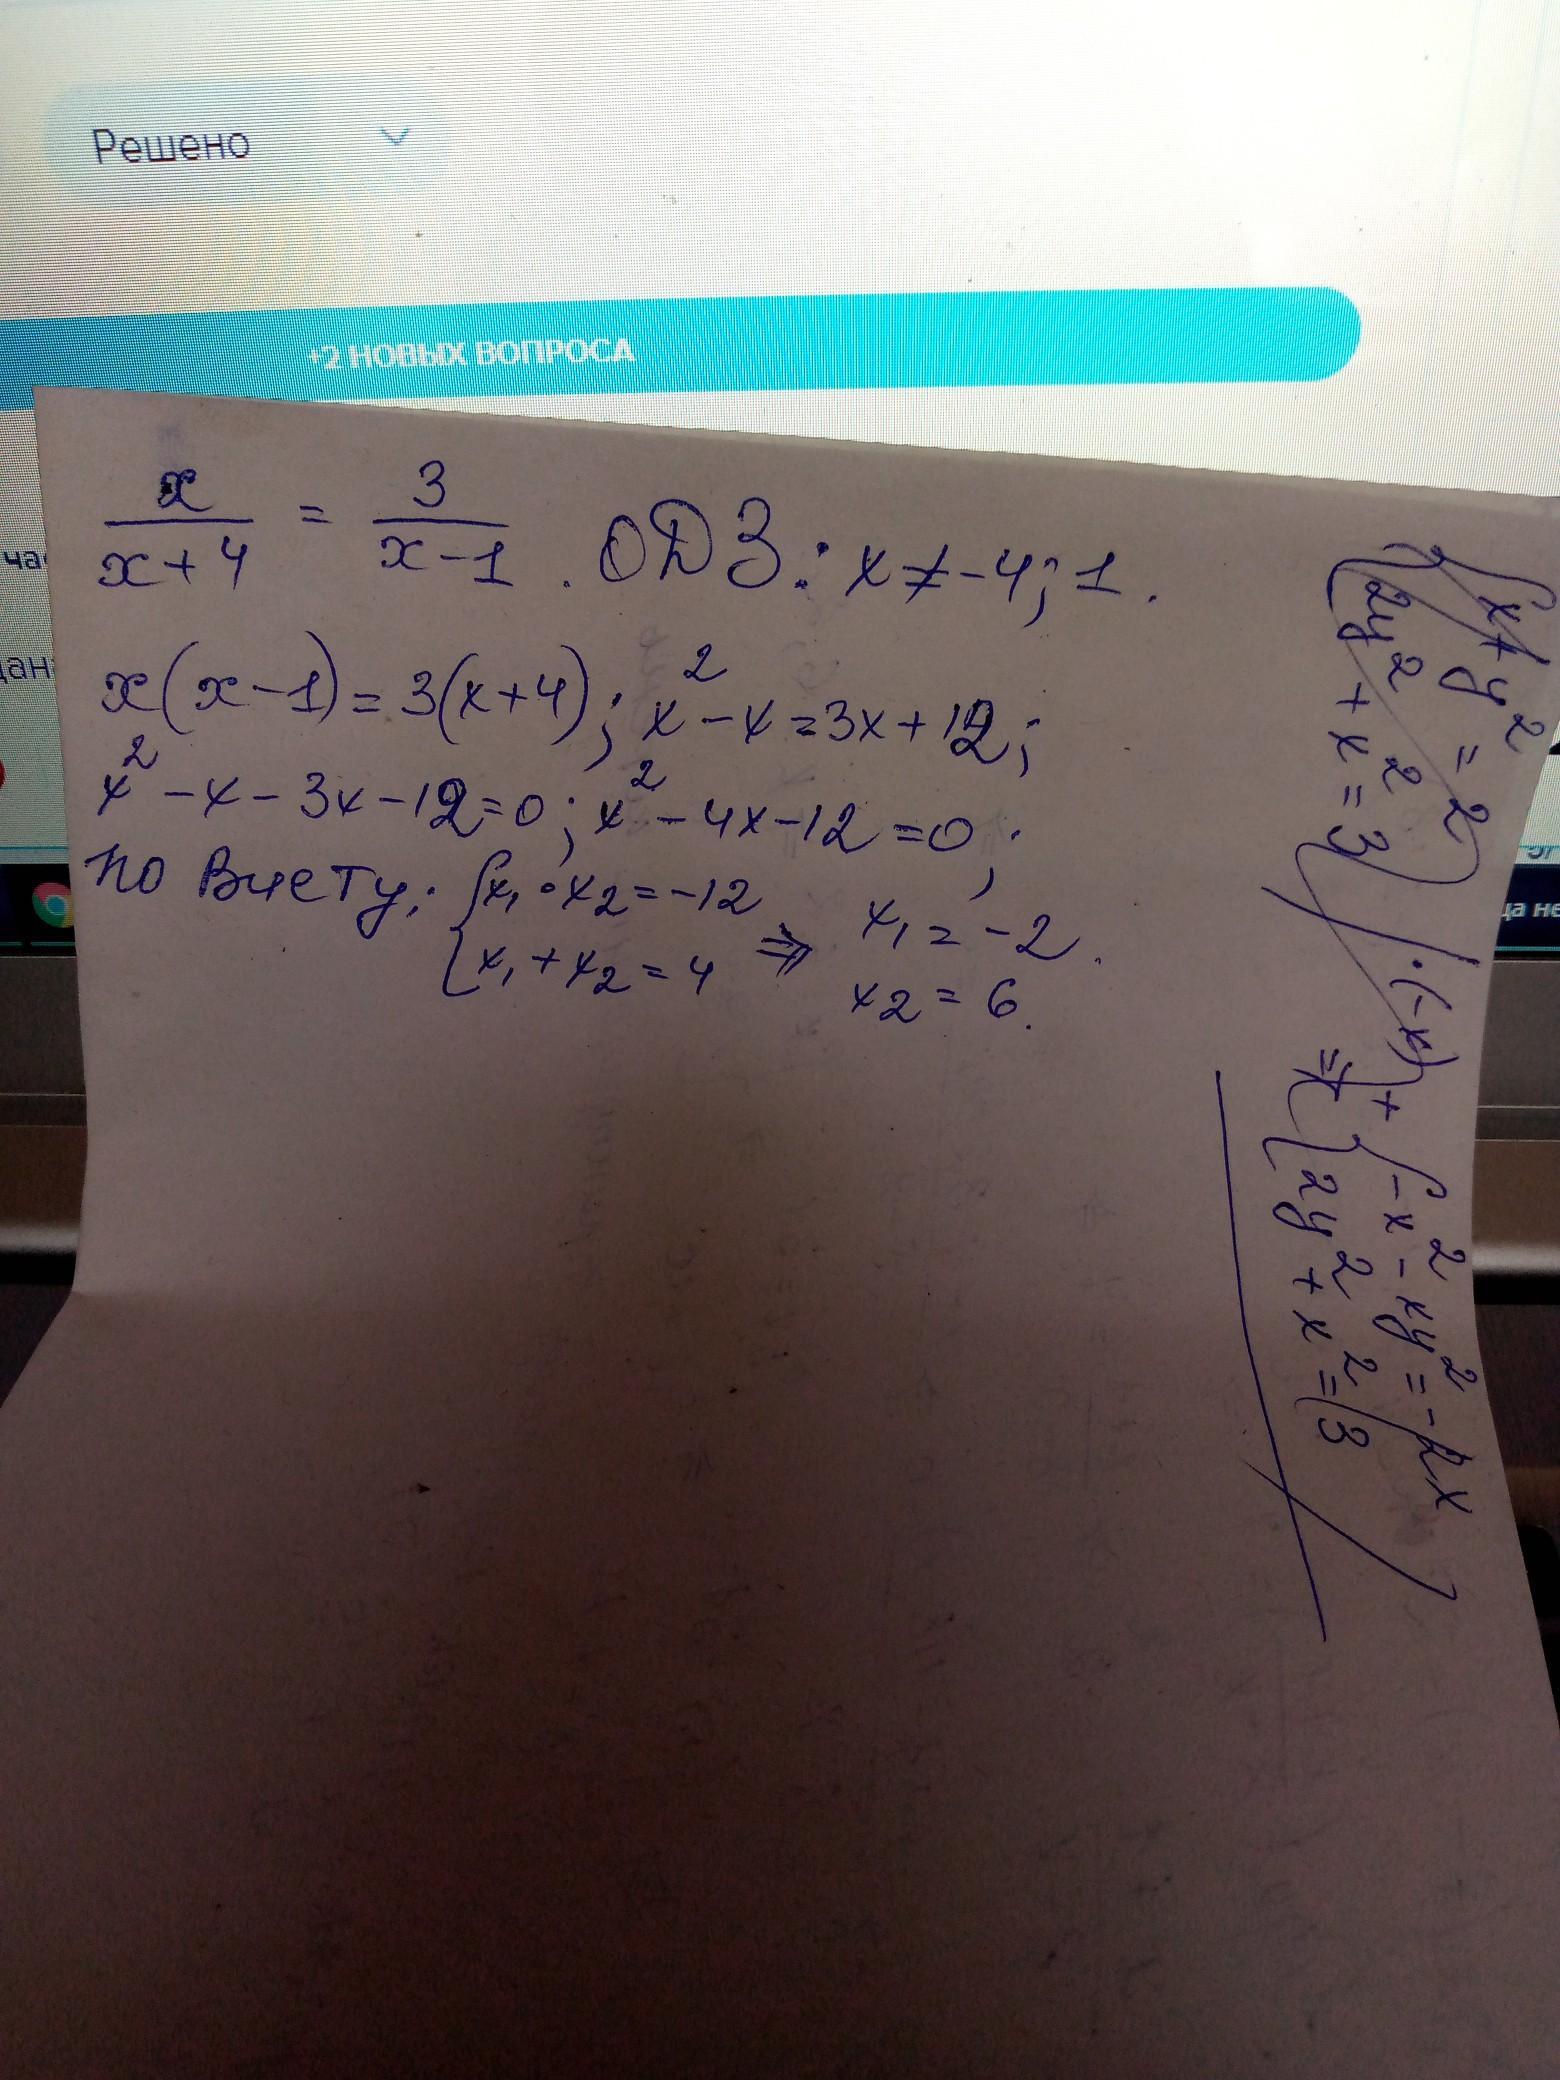 Решено
+2 НОВЫХ ВОПРОСА
x/(x+4) = 3/(x-1). ОДЗ: x≠-4; 1.
x(x-1)=3(x+4); x²-x=3x+12;
x²-x-3x-12=0; x²-4x-12=0;
по Виету: {x₁·x₂=-12
{x₁+x₂=4 ⇒ x₁=-2.
x₂=6.
{x+y²=2 |·(-x)
{2y²+x²=3
⇒ + {-x²-xy²=-2x
{2y²+x²=3